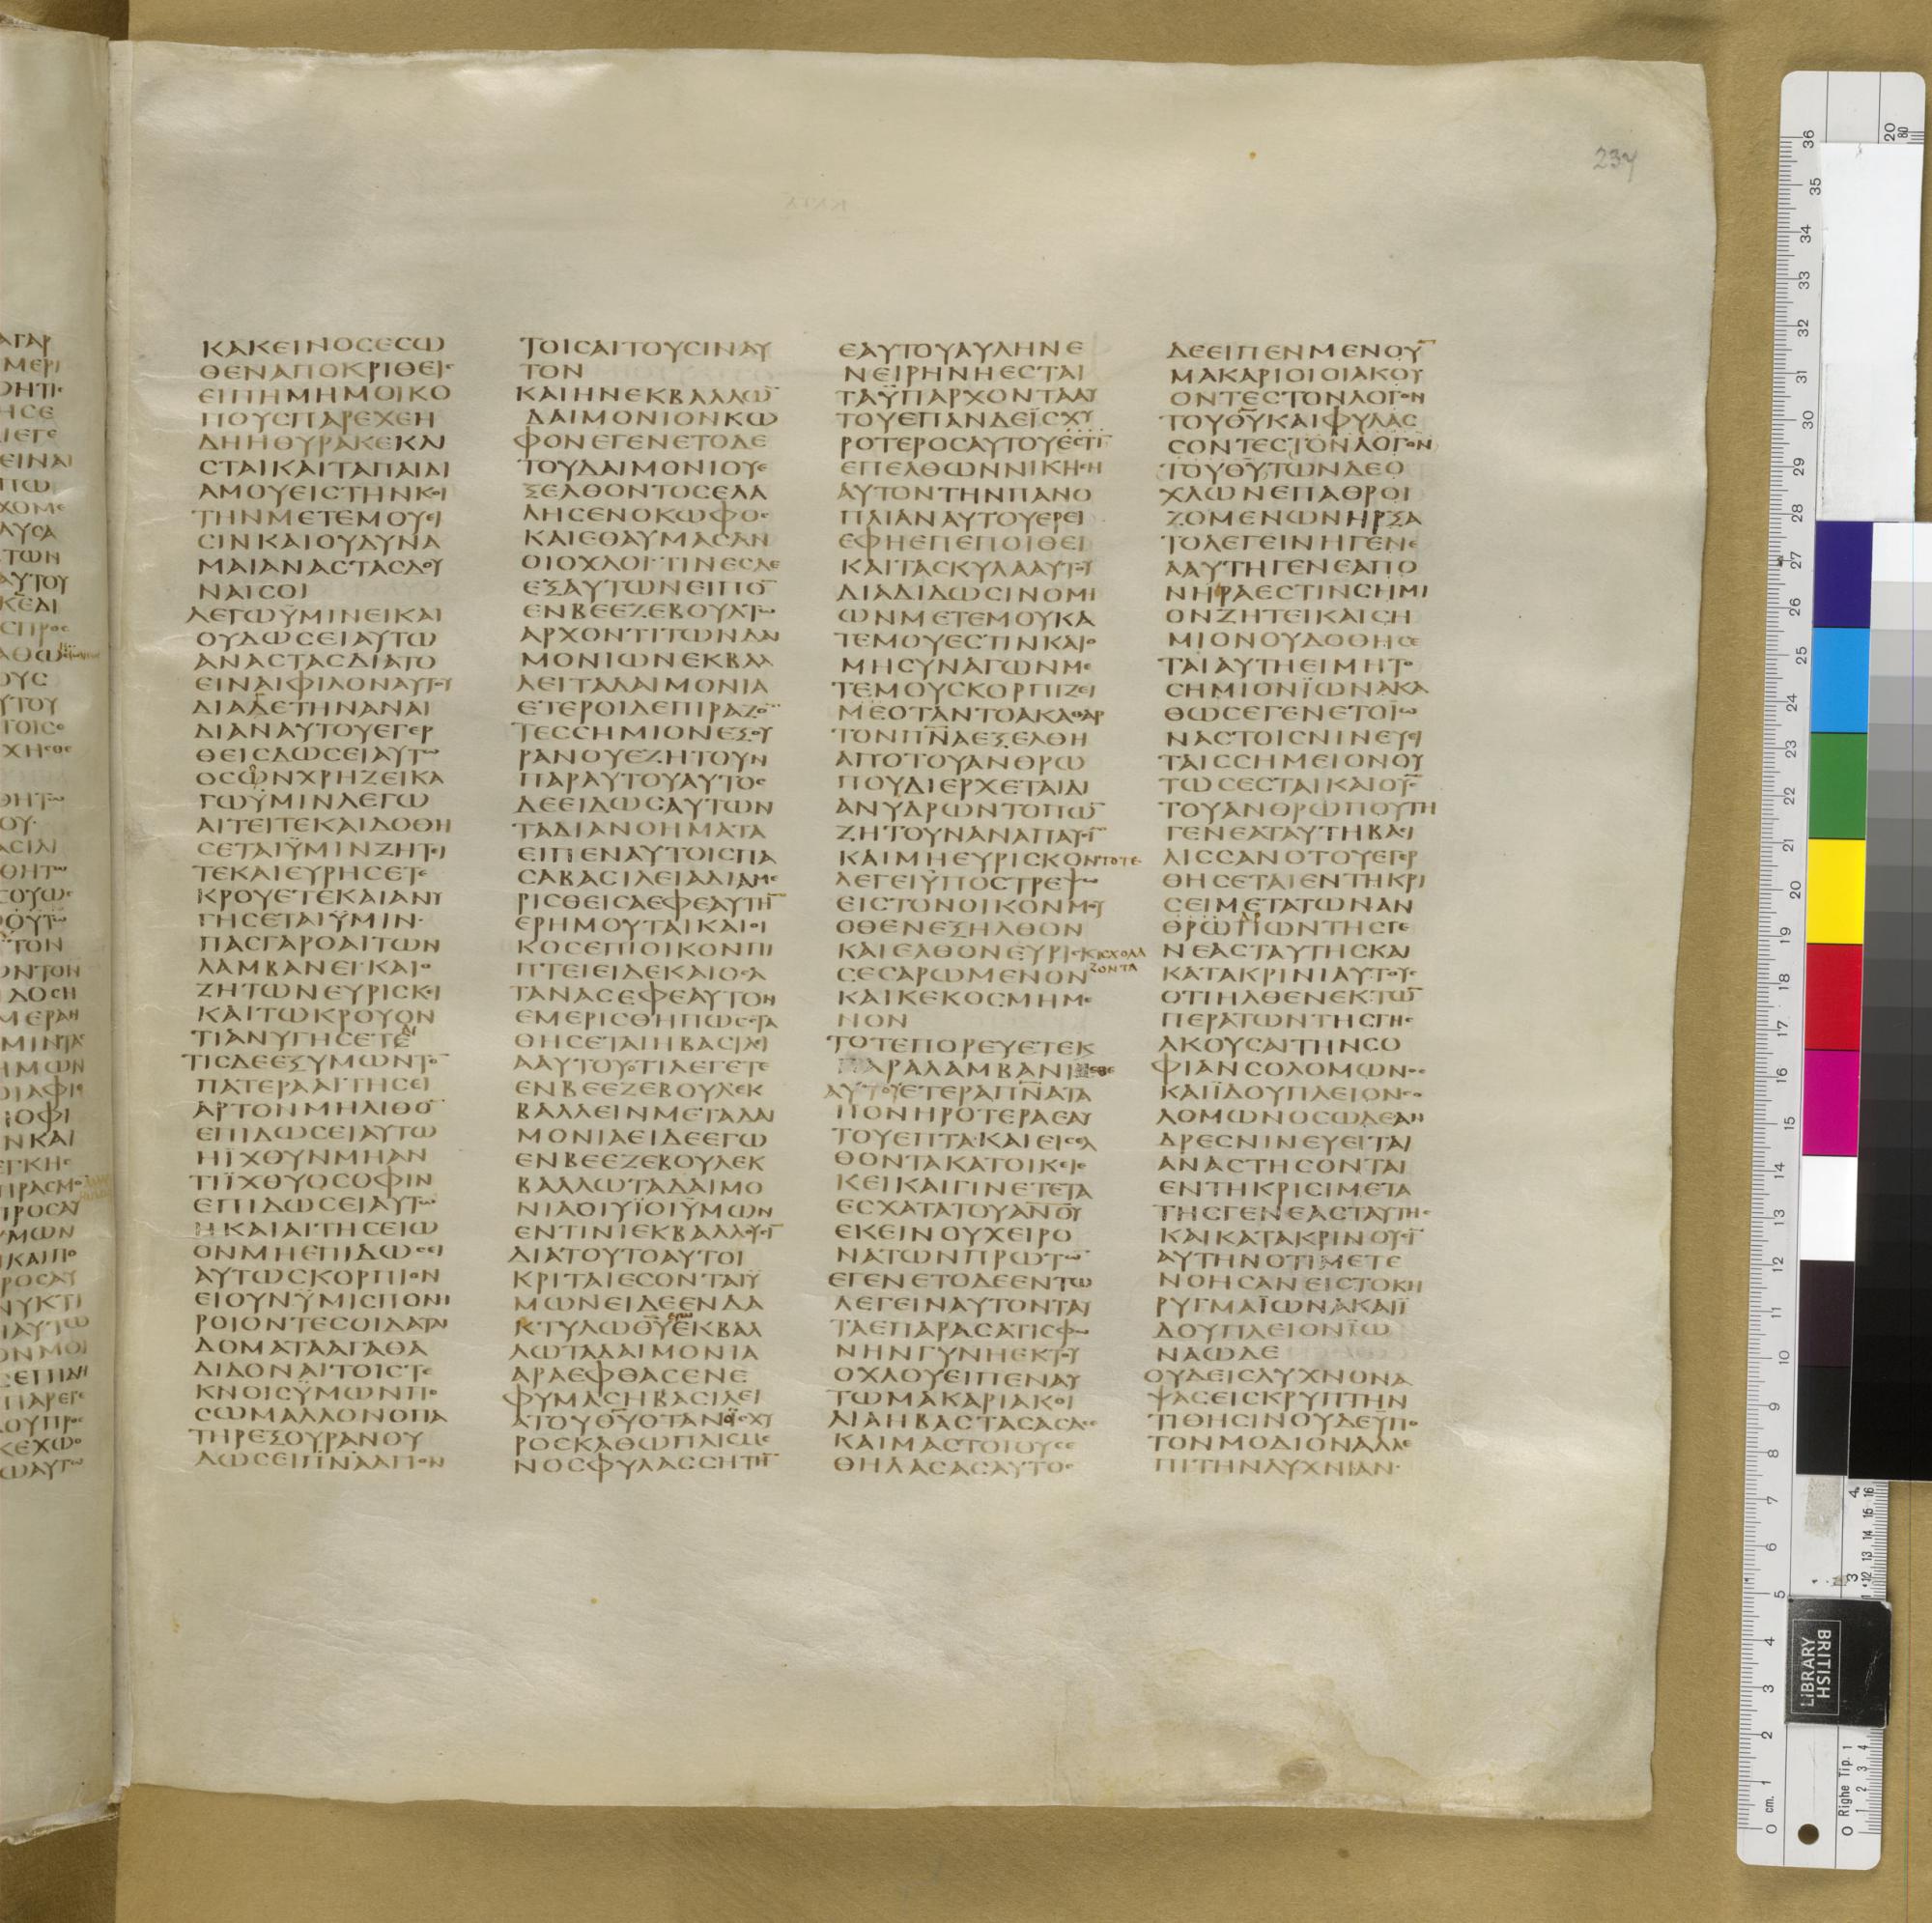 ΚΑΚΕΙΝΟCΕCΩ
ΘΕΝΑΠΟΚΡΙΘΕΙC
ΕΙΠΗΜΗΜΟΙΚΟ
ΠΟΥCΠΑΡΕΧΕΗ
ΔΗΗΘΥΡΑΚΕΚΛΙ
CΤΑΙΚΑΙΤΑΠΑΙΔΙ
ΑΜΟΥΕΙCΤΗΝΚΟΙ
ΤΗΝΜΕΤΕΜΟΥΕΙ
CΙΝΚΑΙΟΥΔΥΝΑ
ΜΑΙΑΝΑCΤΑCΔΟΥ
ΝΑΙCΟΙ
ΛΕΓΩΫΜΙΝΕΙΚΑΙ
ΟΥΔΩCΕΙΑΥΤΩ
ΑΝΑCΤΑCΔΙΑΤΟ
ΕΙΝΑΙΦΙΛΟΝΑΥΤΟΥ
ΔΙΑΔΕΤΗΝΑΝΑΙ
ΔΙΑΝΑΥΤΟΥΕΓΕΡ
ΘΕΙCΔΩCΕΙΑΥΤΩ
ΟCΩΝΧΡΗΖΕΙΚΑ
ΓΩΫΜΙΝΛΕΓΩ
ΑΙΤΕΙΤΕΚΑΙΔΟΘΗ
CΕΤΑΙΫΜΙΝΖΗΤΕΙ
ΤΕΚΑΙΕΥΡΗCΕΤΕ
ΚΡΟΥΕΤΕΚΑΙΑΝΥ
ΓΗCΕΤΑΙΫΜΙΝ·
ΠΑCΓΑΡΟΑΙΤΩΝ
ΛΑΜΒΑΝΕΙ·ΚΑΙΟ
ΖΗΤΩΝΕΥΡΙCΚΕΙ
ΚΑΙΤΩΚΡΟΥΟΝ
ΤΙΑΝΥΓΗCΕΤΕ
ΤΙCΔΕΕΞΥΜΩΝΤΟ̅
ΠΑΤΕΡΑΑΙΤΗCΕΙ
ΑΡΤΟΝΜΗΛΙΘΟ̅
ΕΠΙΔΩCΕΙΑΥΤΩ
ΗΪΧΟΥΝΜΗΑΝ
ΤΙΪΧΘΥΟCΟΦΙΝ
ΕΠΙΔΩCΕΙΑΥΤΩ
ΗΚΑΙΑΙΤΗCΕΙΩ
ΟΝΜΗΕΠΙΔΩCΕΙ
ΑΥΤΩCΚΟΡΠΙΟΝ
ΕΙΟΥΝΫΜΙCΠΟΝΗ
ΡΟΙΟΝΤΕCΟΙΔΑΤΑΙ
ΔΟΜΑΤΑΑΓΑΘΑ
ΔΙΔΟΝΑΙΤΟΙCΤΕ
ΚΝΟΙCΫΜΩΝΠΟ
CΩΜΑΛΛΟΝΟΠΑ
ΤΗΡΕΞΟΥΡΑΝΟΥ
ΔΩCΕΙΠΝ̅ΑΑΓΙΟΝ
ΤΟΙCΑΙΤΟΥCΙΝΑΥ
ΤΟΝ
ΚΑΙΗΝΕΚΒΑΛΛΩ̅
ΔΑΙΜΟΝΙΟΝΚΩ
ΦΟΝΕΓΕΝΕΤΟΔΕ
ΤΟΥΔΑΙΜΟΝΙΟΥΕ
ΞΕΛΘΟΝΤΟCΕΛΑ
ΛΗCΕΝΟΚΩΦΟC
ΚΑΙΕΘΑΥΜΑCΑΝ
ΟΙΟΧΛΟΙ·ΤΙΝΕCΔΕ
ΕΞΑΥΤΩΝΕΙΠΟ̅
ΕΝΒΕΕΖΕΒΟΥΛΤΩ
ΑΡΧΟΝΤΙΤΩΝΔΑΙ
ΜΟΝΙΩΝΕΚΒΑΛ
ΛΕΙΤΑΔΑΙΜΟΝΙΑ
ΕΤΕΡΟΙΔΕΠΙΡΑΖΟ̅
ΤΕCCΗΜΙΟΝΕΞΟΥ
ΡΑΝΟΥΕΖΗΤΟΥΝ
ΠΑΡΑΥΤΟΥΑΥΤΟC
ΔΕΕΙΔΩCΑΥΤΩΝ
ΤΑΔΙΑΝΟΗΜΑΤΑ
ΕΙΠΕΝΑΥΤΟΙCΠΑ
CΑΒΑCΙΛΕΙΑΔΙΑΜΕ
ΡΙCΘΕΙCΑΕΦΕΑΥΤΗ̅
ΕΡΗΜΟΥΤΑΙΚΑΙΟΙ
ΚΟCΕΠΙΟΙΚΟΝΠΙ
ΠΤΕΙΕΙΔΕΚΑΙΟCΑ
ΤΑΝΑCΕΦΕΑΥΤΟΝ
ΕΜΕΡΙCΘΗΠΩCCΤΑ
ΘΗCΕΤΑΙΗΒΑCΙΛΕΙ
ΑΑΥΤΟΥΟΤΙΛΕΓΕΤΕ
ΕΝΒΕΕΖΕΒΟΥΛΕΚ
ΒΑΛΛΕΙΝΜΕΤΑΔΑΙ
ΜΟΝΙΑΕΙΔΕΕΓΩ
ΕΝΒΕΕΖΕΒΟΥΛΕΚ
ΒΑΛΛΩΤΑΔΑΙΜΟ
ΝΙΑΟΙΥΪΟΙΫΜΩΝ
ΕΝΤΙΝΙΕΚΒΑΛΛΟΥCΙ̅
ΔΙΑΤΟΥΤΟΑΥΤΟΙ
ΚΡΙΤΑΙΕCΟΝΤΑΙΫ
ΜΩΝΕΙΔΕΕΝΔΑ
ΚΤΥΛΩΘ̅Υ̅ΕΓΩΕΚΒΑΛ
ΛΩΤΑΔΑΙΜΟΝΙΑ
ΑΡΑΕΦΘΑCΕΝΕ
ΦΥΜΑCΗΒΑCΙΛΕΙ
ΑΤΟΥΘ̅Υ̅ΟΤΑΝΟΪCΧΥ
ΡΟCΚΑΘΩΠΛΙCΜΕ
ΝΟCΦΥΛΑCCΗΤΗ̅
ΕΑΥΤΟΥΑΥΛΗΝΕ
ΝΕΙΡΗΝΗΕCΤΑΙ
ΤΑΫΠΑΡΧΟΝΤΑΑΥ
ΤΟΥΕΠΑΝΔΕΪCΧΥ
ΡΟΤΕΡΟCΑΥΤΟΥΕCΤΙ̅
ΕΠΕΛΘΩΝΝΙΚΗCΗ
ΑΥΤΟΝΤΗΝΠΑΝΟ
ΠΛΙΑΝΑΥΤΟΥΕΡΕΙ
ΕΦΗΕΠΕΠΟΙΘΕΙ
ΚΑΙΤΑCΚΥΛΑΑΥΤΟΥ
ΔΙΑΔΙΔΩCΙΝΟΜΙ
ΩΝΜΕΤΕΜΟΥΚΑ
ΤΕΜΟΥΕCΤΙΝΚΑΙΟ
ΜΗCΥΝΑΓΩΝΜΕ
ΤΕΜΟΥCΚΟΡΠΙΖΕΙ
ΜΕΟΤΑΝΤΟΑΚΑΘΑΡ
ΤΟΝΠΝ̅ΑΕΞΕΛΘΗ
ΑΠΟΤΟΥΑΝΘΡΩ
ΠΟΥΔΙΕΡΧΕΤΑΙΔΙ
ΑΝΥΔΡΩΝΤΟΠΩ̅
ΖΗΤΟΥΝΑΝΑΠΑΥCΙ̅
ΚΑΙΜΗΕΥΡΙCΚΟΝΤΟΤΕ
ΛΕΓΕΙΫΠΟCΤΡΕΨΩ
ΕΙCΤΟΝΟΙΚΟΝΜΟΥ
ΟΘΕΝΕΞΗΛΘΟΝ
ΚΑΙΕΛΘΟΝΕΥΡΙCΚΙCΧΟΛΑ
ΖΟΝΤΑ
CΕCΑΡΩΜΕΝΟΝ
ΚΑΙΚΕΚΟCΜΗΜΕ
ΝΟΝ
ΤΟΤΕΠΟΡΕΥΕΤΕΚ
ΠΑΡΑΛΑΜΒΑΝΙ
ΑΥΤΟΥΕΤΕΡΑΠΝ̅ΑΤΑ
ΠΟΝΗΡΟΤΕΡΑΕΑΥ
ΤΟΥΕΠΤΑ·ΚΑΙΕΙCΕΛ
ΘΟΝΤΑΚΑΤΟΙΚΕΙΕ
ΚΕΙΚΑΙΓΙΝΕΤΕΤΑ
ΕCΧΑΤΑΤΟΥΑΝ̅ΟΥ̅
ΕΚΕΙΝΟΥΧΕΙΡΟ
ΝΑΤΩΝΠΡΩΤΩ̅
ΕΓΕΝΕΤΟΔΕΕΝΤΩ
ΛΕΓΕΙΝΑΥΤΟΝΤΑΥ
ΤΑΕΠΑΡΑCΑΤΙCΦΩ
ΝΗΝΓΥΝΗΕΚΤΟΥ
ΟΧΛΟΥΕΙΠΕΝΑΥ
ΤΩΜΑΚΑΡΙΑΚΟΙ
ΛΙΑΗΒΑCΤΑCΑCΑCΕ
ΚΑΙΜΑCΤΟΙΟΥCΕ
ΘΗΛΑCΑCΑΥΤΟC
ΔΕΕΙΠΕΝΜΕΝΟΥ̅
ΜΑΚΑΡΙΟΙΟΙΑΚΟΥ
ΟΝΤΕCΤΟΝΛΟΓΟΝ
ΤΟΥΘ̅Υ̅ΚΑΙΦΥΛΑC
CΟΝΤΕCΤΟΝΛΟΓΟΝ
ΤΟΥΘ̅Υ̅ΤΩΝΔΕΟ
ΧΛΩΝΕΠΑΘΡΟΙ
ΖΟΜΕΝΩΝΗΡΞΑ
ΤΟΛΕΓΕΙΝΗΓΕΝΕ
ΑΑΥΤΗΓΕΝΕΑΠΟ
ΝΗΡΑΕCΤΙΝCΗΜΙ
ΟΝΖΗΤΕΙΚΑΙCΗ
ΜΙΟΝΟΥΔΟΘΗCΕ
ΤΑΙΑΥΤΗΕΙΜΗΤΟ
CΗΜΙΟΝΪΩΝΑΚΑ
ΘΩCΕΓΕΝΕΤΟΪΩ
ΝΑCΤΟΙCΝΙΝΕΥΕΙ
ΤΑΙCCΗΜΕΙΟΝΟΥ
ΤΩCΕCΤΑΙΚΑΙΟΥC̅
ΤΟΥΑΝΘΡΩΠΟΥΤΗ
ΓΕΝΕΑΤΑΥΤΗΒΑCΙ
ΛΙCCΑΝΟΤΟΥΕΓΕΡ
ΘΗCΕΤΑΙΕΝΤΗΚΡΙ
CΕΙΜΕΤΑΤΩΝΑΝ
ΘΡΩΠΩΝΤΗCΓΕ
ΝΕΑCΤΑΥΤΗCΚΑΙ
ΚΑΤΑΚΡΙΝΙΑΥΤΟΥC
ΟΤΙΗΛΘΕΝΕΚΤΩ̅
ΠΕΡΑΤΩΝΤΗCΓΗC
ΑΚΟΥCΑΙΤΗΝCΟ
ΦΙΑΝCΟΛΟΜΩΝΟC
ΚΑΙΪΔΟΥΠΛΕΙΟΝCΟ
ΛΟΜΩΝΟCΩΔΕΑΝ
ΔΡΕCΝΙΝΕΥΕΙΤΑΙ
ΑΝΑCΤΗCΟΝΤΑΙ
ΕΝΤΗΚΡΙCΙΜΕΤΑ
ΤΗCΓΕΝΕΑCΤΑΥΤΗC
ΚΑΙΚΑΤΑΚΡΙΝΟΥCΙ̅
ΑΥΤΗΝΟΤΙΜΕΤΕ
ΝΟΗCΑΝΕΙCΤΟΚΗ
ΡΥΓΜΑΪΩΝΑΚΑΙΪ
ΔΟΥΠΛΕΙΟΝΪΩ
ΝΑΩΔΕ
ΟΥΔΕΙCΛΥΧΝΟΝΑ
ΨΑCΕΙCΚΡΥΠΤΗΝ
ΤΙΘΗCΙΝΟΥΔΕΫΠΟ
ΤΟΝΜΟΔΙΟΝΑΛΛΕ
ΠΙΤΗΝΛΥΧΝΙΑΝ·
237
BRITISH
LIBRARY